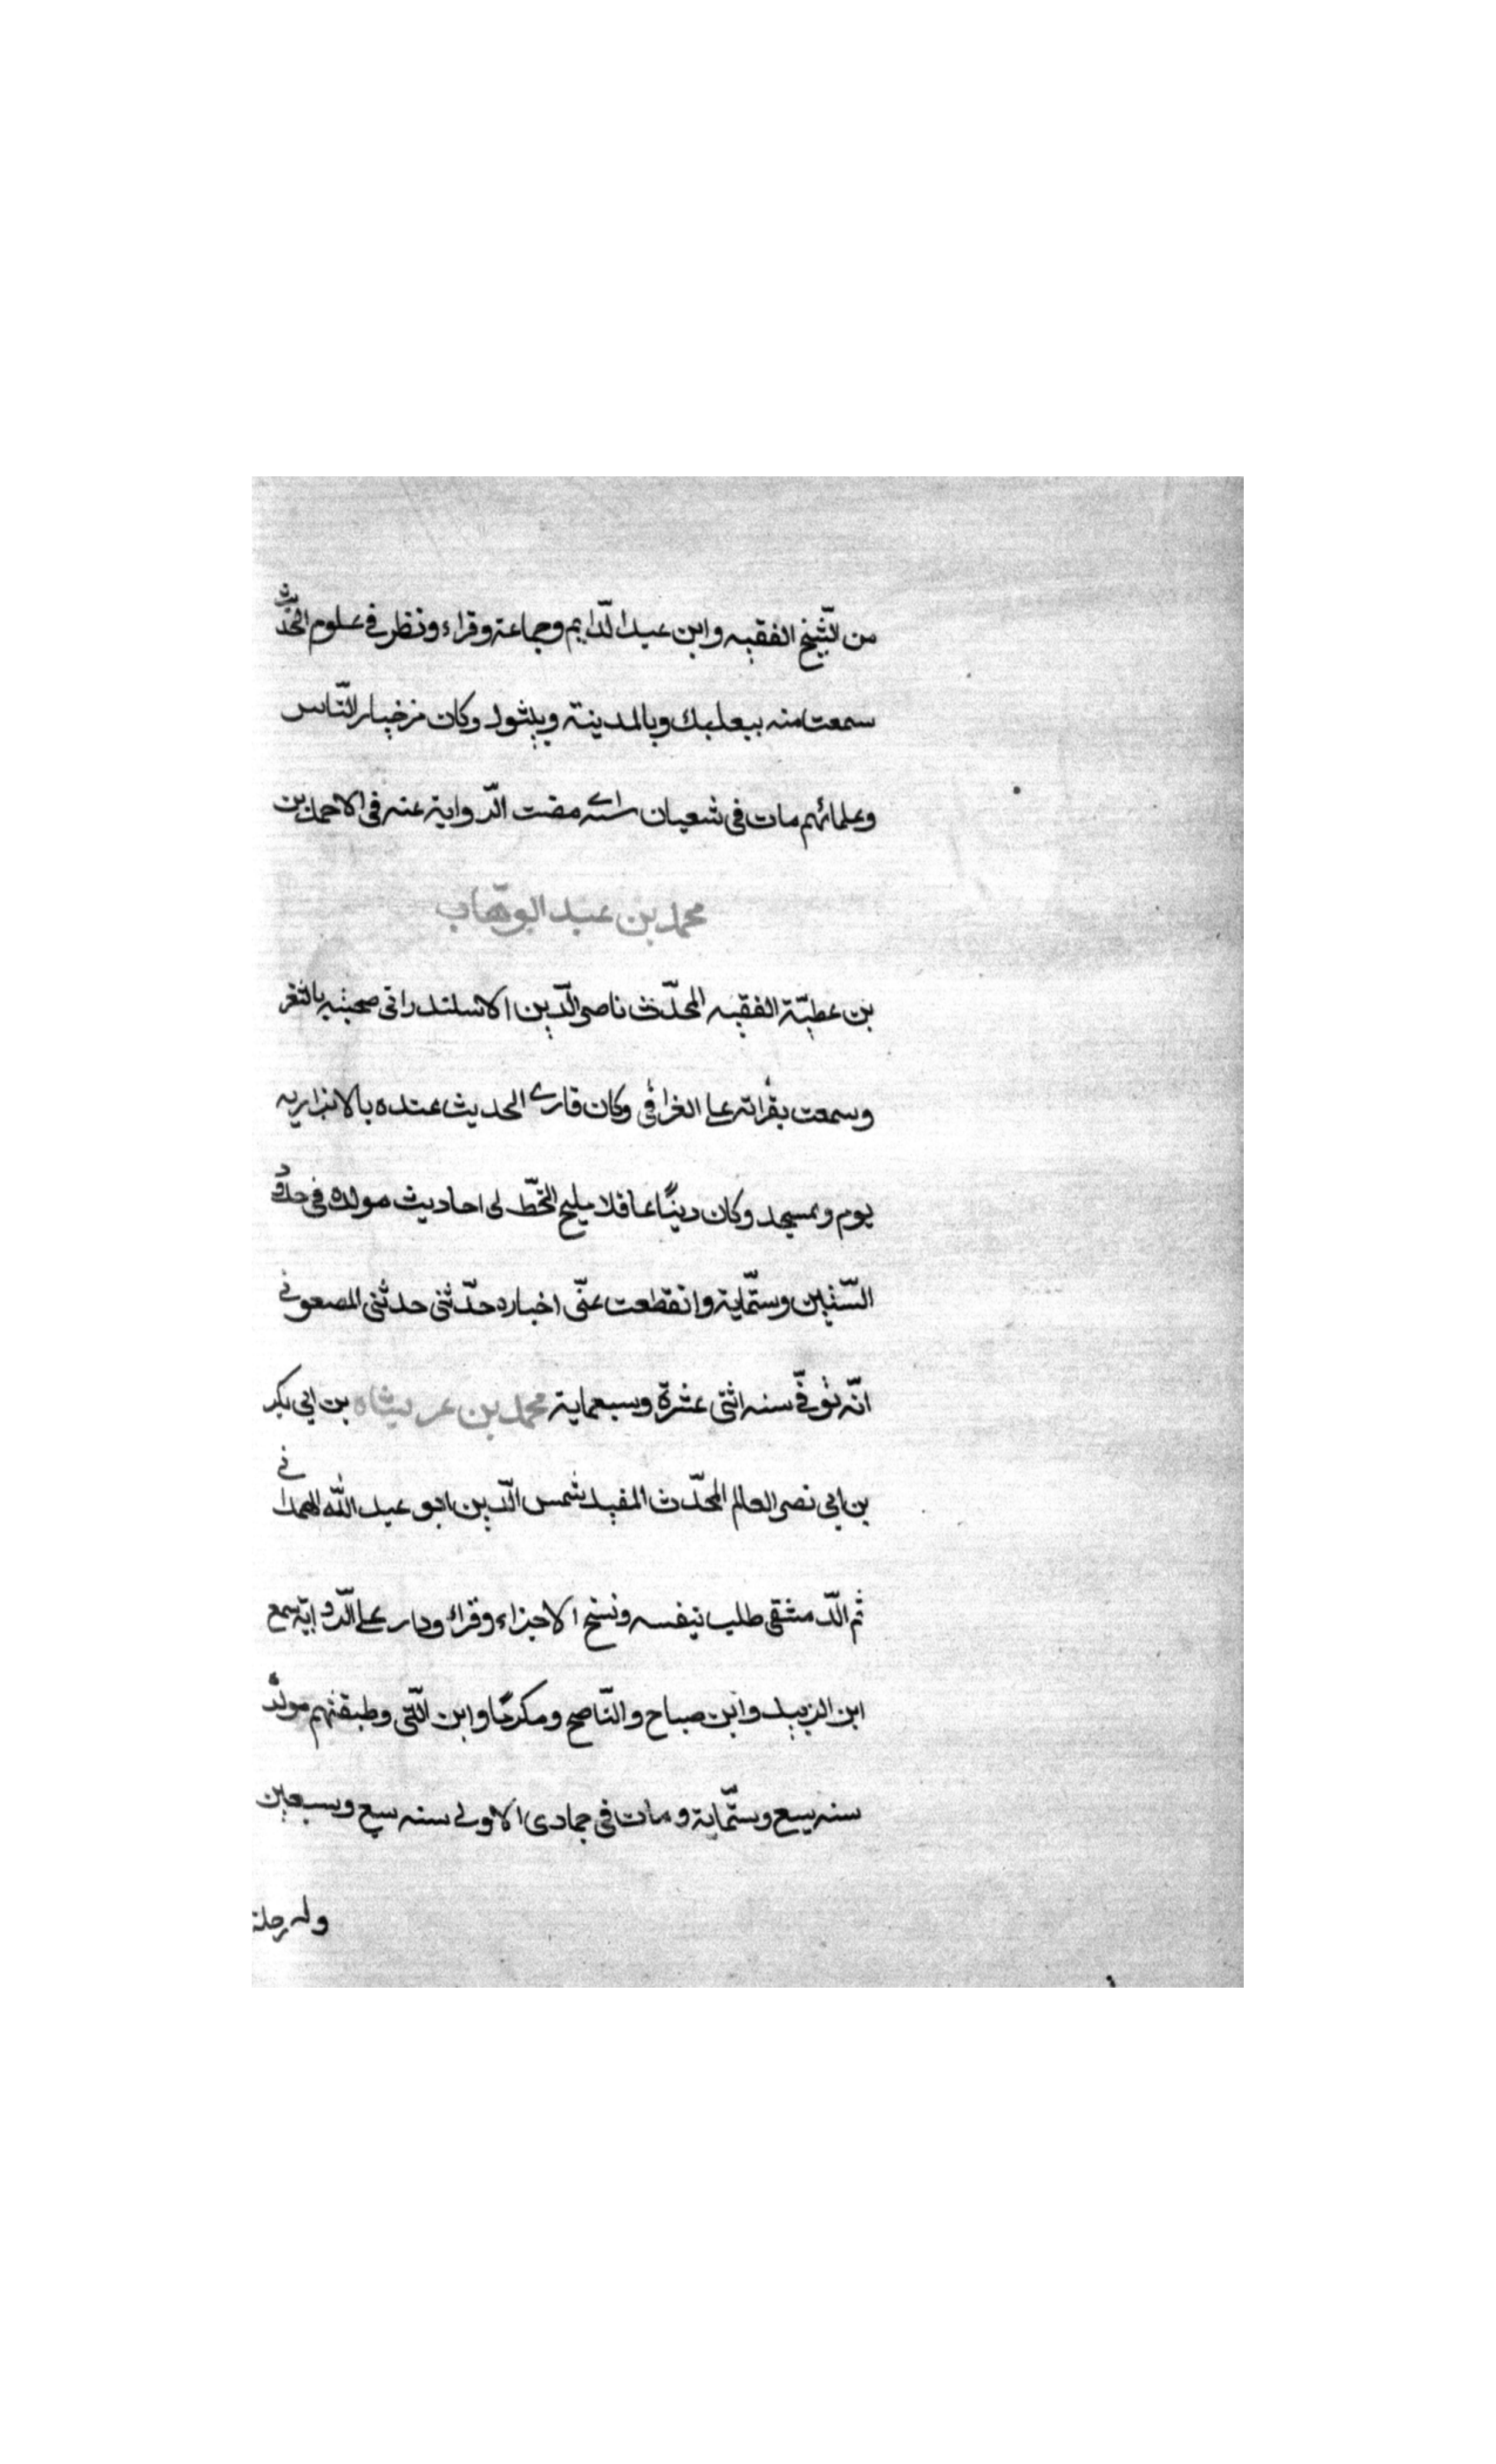 من الشّيخ الفقيه وابن عبد الدّايم وجماعة وقراء ونظر في علوم الحديث
سمعت منه ببعلبك وبالمدينة وبتبوك وكان من خيار النّاس
وعلمائهم مات في شعبان مضت الرّواية عنه في الاحمد بن
محمد بن عبد الوهّاب
بن عطيّة الفقيه المحدّث ناصر الدّين الاسكندراني صحبته بالثغر
وسمعت بقراته على الغرافي وكان قارئ الحديث عنده بالابزاريه
يوم وبمسجد وكان ديّنًا عاقلا مليح الخطّ لي احاديث مولده في حدود
السّتين وستّماية وانقطعت عنّي اخباره حدّثني حدثني المصعوني
انّه توفّي سنه اثنتى عشرة وسبعماية محمد بن عربشاه بن ابي بكر
بن ابي نصر العالم المحدّث المفيد شمس الدّين ابو عبد الله الهمداني
ثم الدّمشقي طلب بنفسه ونسخ الاجزاء وقراء ودار على الرّواية سمع
ابن الزبيد وابن صباح والنّاصح ومكرمًا وابن اللّتّي وطبقتهم مولده
سنه سبع وستّماية ومات في جمادى الاولى سنه سبع وسبعين
وله رحلة